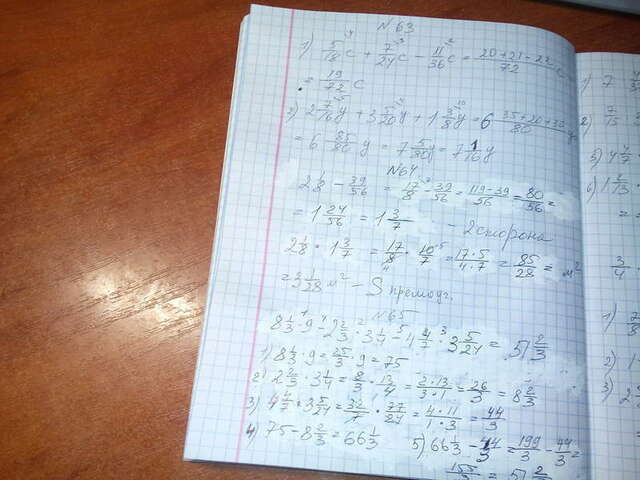 N 63
1) 5/18 c + 7/24 c - 11/36 c = (20+21-22)/72 c
= 19/72 c
2) 2 7/16 y + 3 5/20 y + 1 3/8 y = 6 (35+20+30)/80 y
= 6 85/80 y = 7 5/80 y = 7 1/16 y
N 64
2 1/8 - 39/56 = 17/8 - 39/56 = (119-39)/56 = 80/56 =
= 1 24/56 = 1 3/7 - 2 сторона
2 1/8 · 1 3/7 = 17/8 · 10/7 = (17·5)/(4·7) = 85/28 = м²
= 3 1/28 м² - S прямоуг.
N 65
8 1/3 · 9 - 2 2/3 · 3 1/4 - 4 4/7 · 3 5/24 = 51 2/3
1) 8 1/3 · 9 = 25/3 · 9 = 75
2) 2 2/3 · 3 1/4 = 8/3 · 13/4 = (2·13)/(3·1) = 26/3 = 8 2/3
3) 4 4/7 · 3 5/24 = 32/7 · 77/24 = (4·11)/(1·3) = 44/3
4) 75 - 8 2/3 = 66 1/3 5) 66 1/3 - 44/3 = 199/3 - 44/3 =
155/3 = 51 2/3